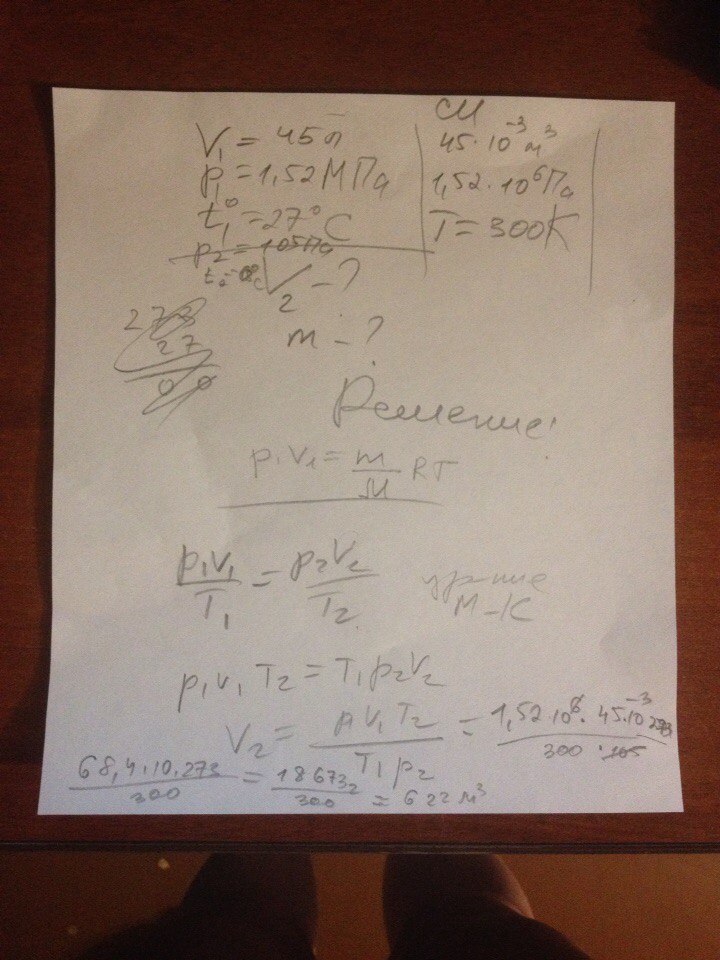 V₁ = 45 л
p₁ = 1,52 МПа
t₁° = 27° C
p₂ = 105 Па
t₂ = 0°C
V₂ - ?
m - ?
СИ
45·10⁻³ м³
1,52·10⁶ Па
T = 300K
273
27
00
Решение:
p₁V₁ = m/M RT
p₁V₁/T₁ = p₂V₂/T₂ ур-ние М-К
p₁V₁T₂ = T₁p₂V₂
V₂ = p₁V₁T₂/T₁p₂ = 1,52·10⁶·45·10⁻³·273/300·105
68,4·10·273/300 = 186732/300 = 622 м³